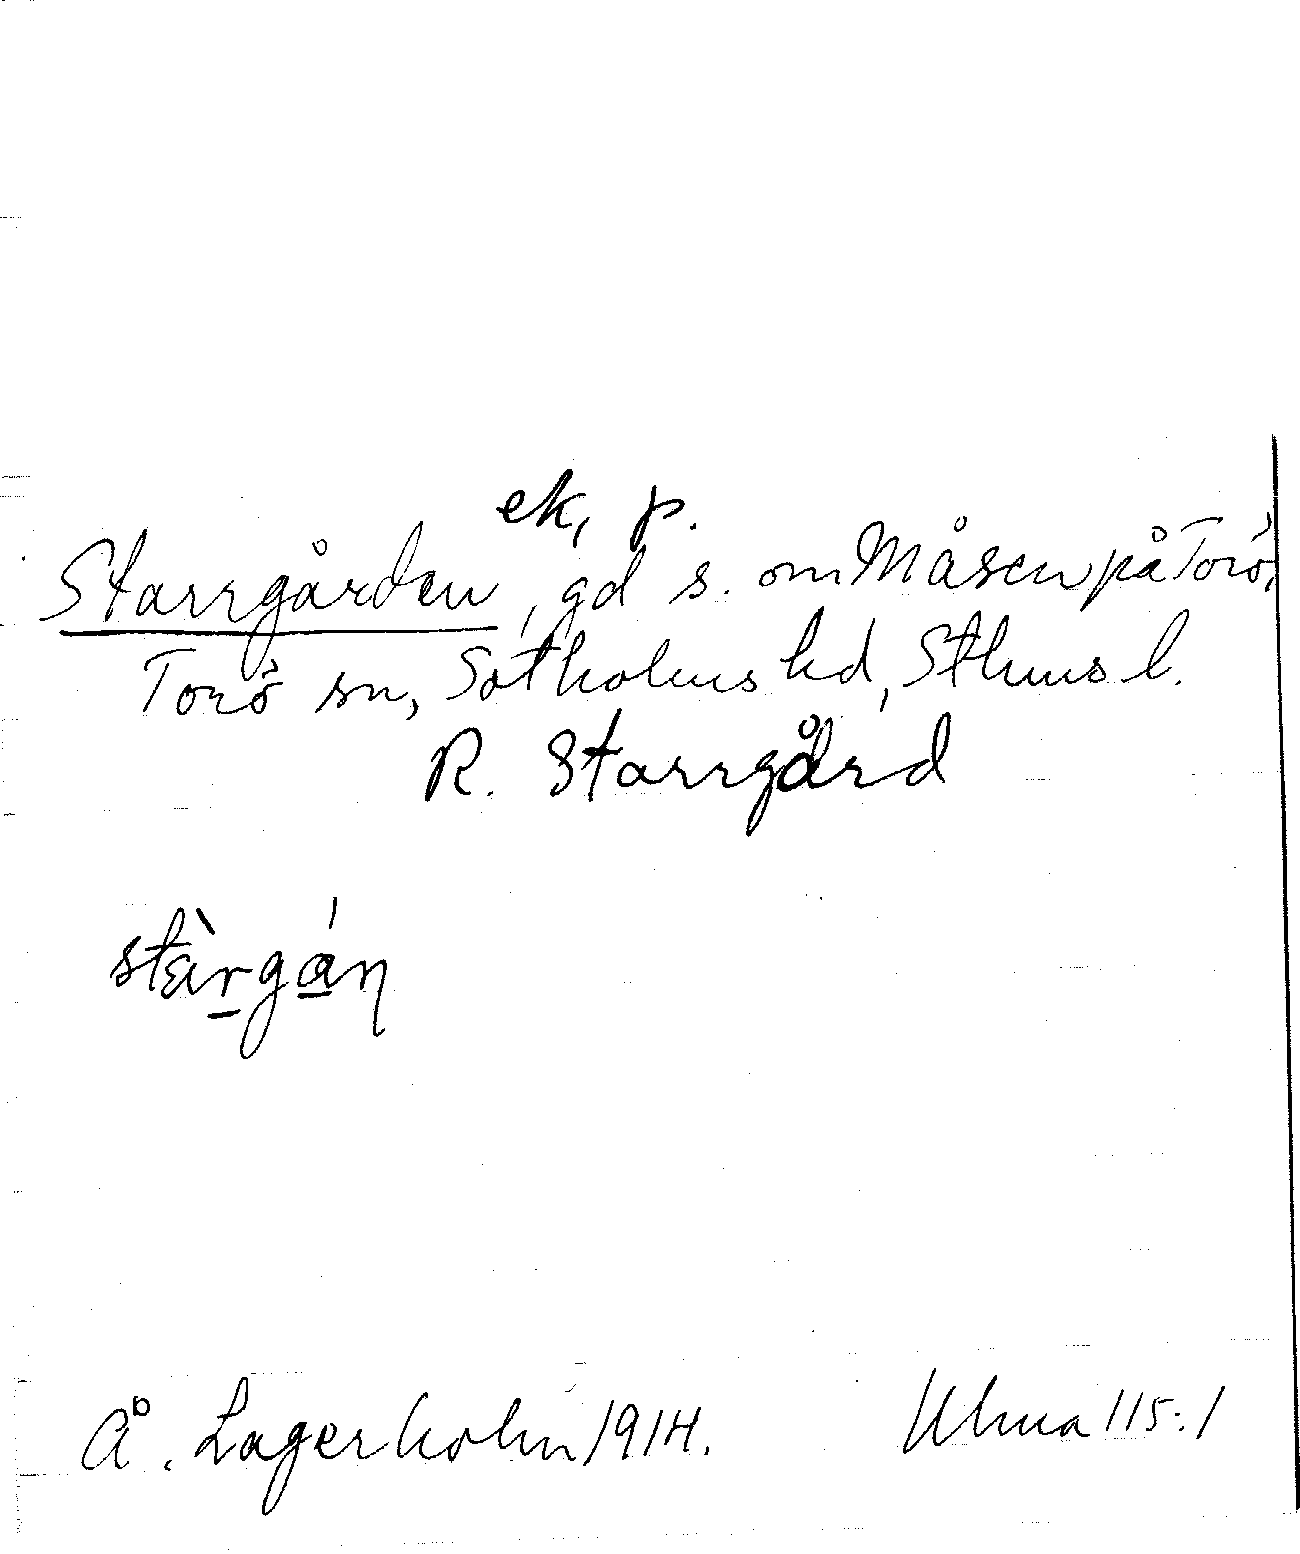 ek, p.
Starrgården, gd s. om Måsen på Torö,
Torö sn, Sotholms hd, Sthms l.
R. Starrgård
stàrgán
Å. Lagerholm 1914. Ulma 115:1